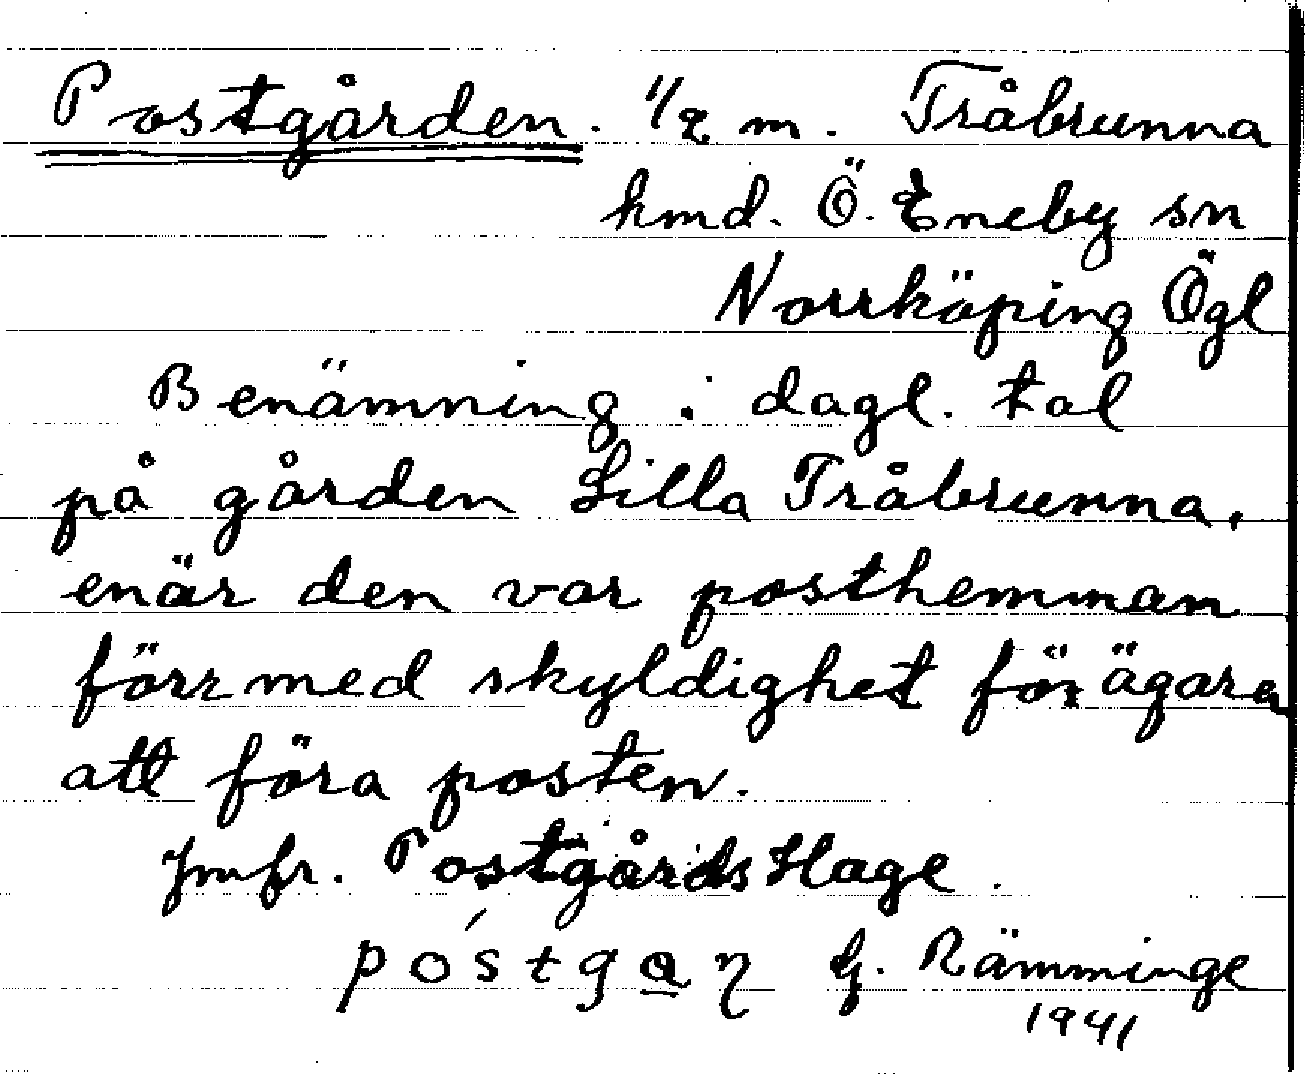 Postgården. 1/2 m. Tråbrunna
hmd. Ö. Eneby sn
Norrköping Ögl
Benämning i dagl. tal
på gården Lilla Tråbrunna,
enär den var posthemman
förr med skyldighet för ägare
att föra posten.
Jmfr. Postgårds Hage.
póstgaɳ G. Rämminge
1941